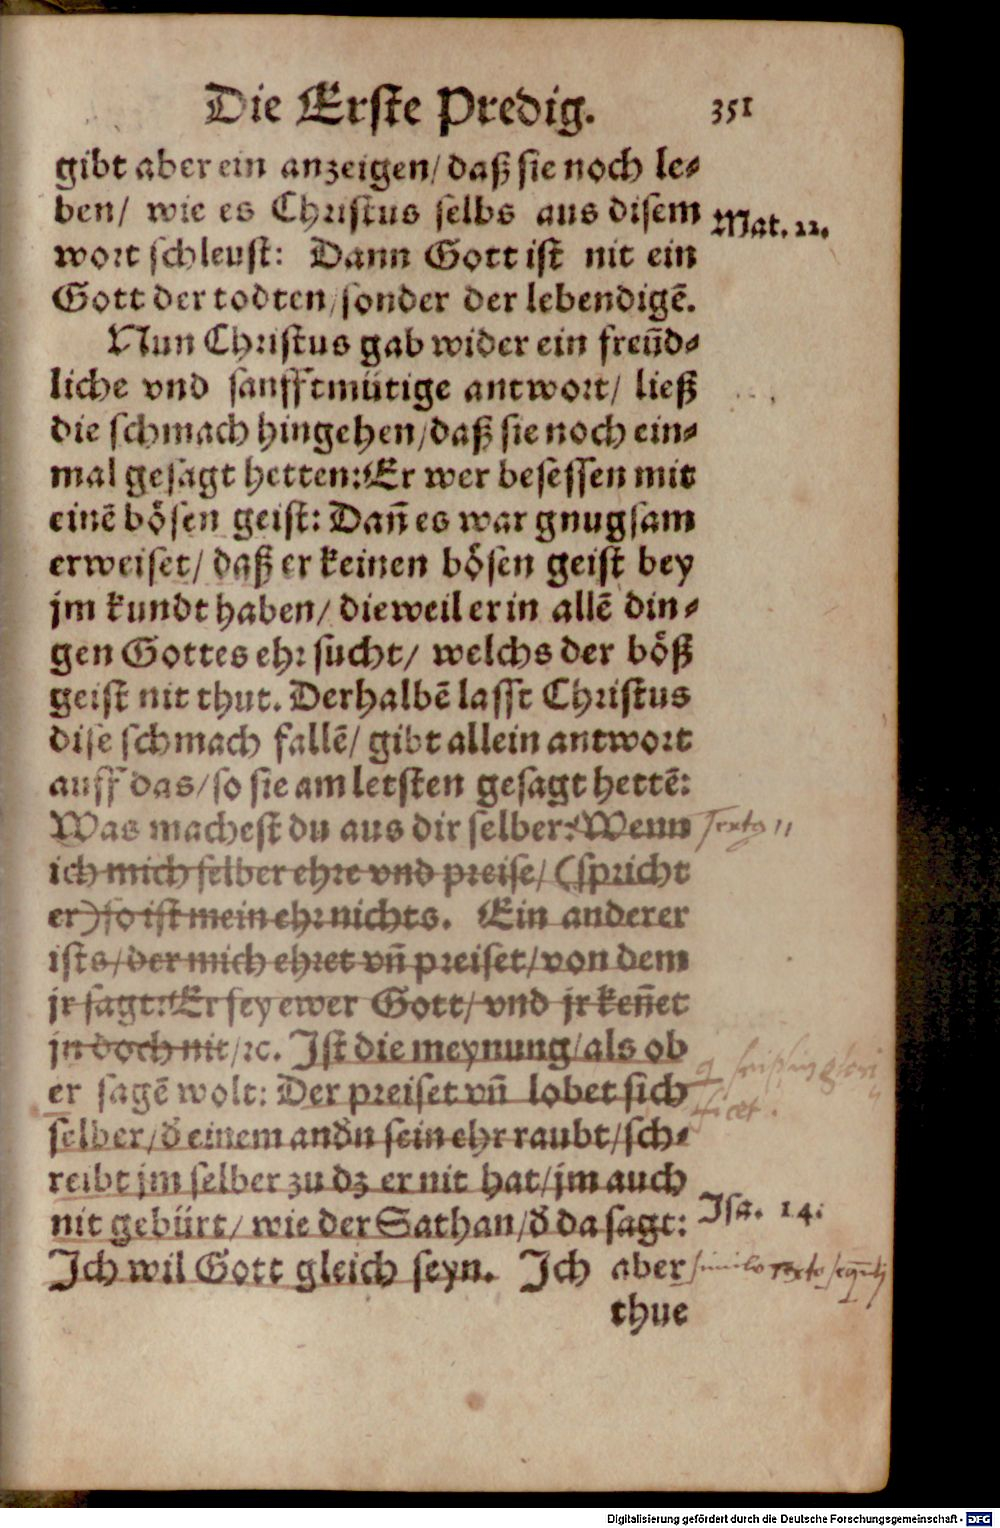 Die Erste Predig. 351
gibt aber ein anzeigen/ daß sie noch le⸗
ben/ wie es Christus selbs aus disem Mat. 22.
wort schleust: Dann Gott ist nit ein
Gott der todten/ sonder der lebendigē.
Nun Christus gab wider ein freūd⸗
liche vnd sanfftmütige antwort/ ließ
die schmach hingehen/ daß sie noch ein⸗
mal gesagt hetten: Er wer besessen mit
einē bösen geist: Dañ es war gnugsam
erweiset/ daß er keinen bösen geist bey
jm kundt haben/ dieweil er in allē din⸗
gen Gottes ehr sucht/ welchs der böß
geist nit thut. Derhalbē lasst Christus
dise schmach fallē/ gibt allein antwort
auff das/ so sie am letsten gesagt hettē:
Was machest du aus dir selber? Wenn
ich mich selber ehre vnd preise/ (spricht
er) so ist mein ehr nichts. Ein anderer
ists/ der mich ehret vñ preiset/ von dem
jr sagt: Er sey ewer Gott/ vnd jr keñet
jn doch nit/ ꝛc. Ist die meynung/ als ob
er sagē wolt: Der preiset vñ lobet sich
selber/ d̄ einem andn sein ehr raubt/ sch⸗
reibt jm selber zu dz er nit hat/ jm auch
nit gebürt/ wie der Sathan/ d̄ da sagt: Isa. 14.
Ich wil Gott gleich seyn. Ich aber
thue
Digitalisierung gefördert durch die Deutsche Forschungsgemeinschaft - DFG